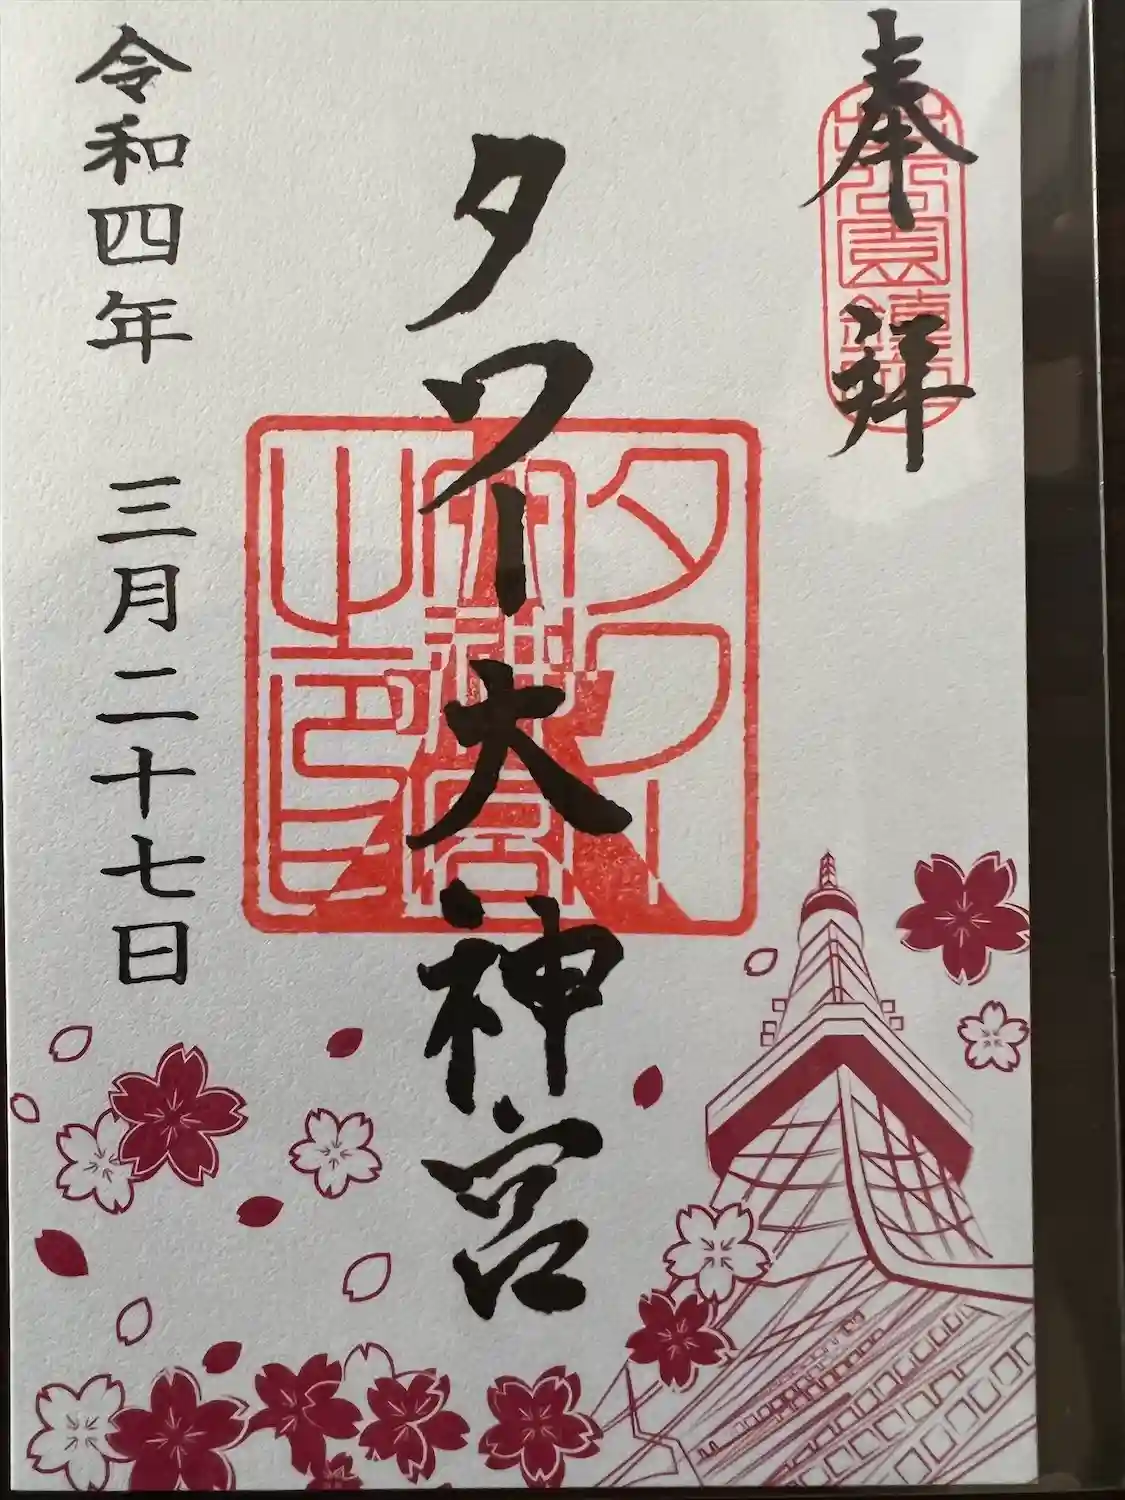 奉拝
タワー大神宮
タワー
大神宮
之印
令和四年 三月二十七日